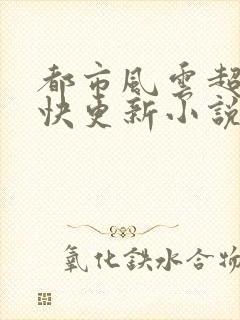 都市風雲超
快更新小説
氧化鉄水合物